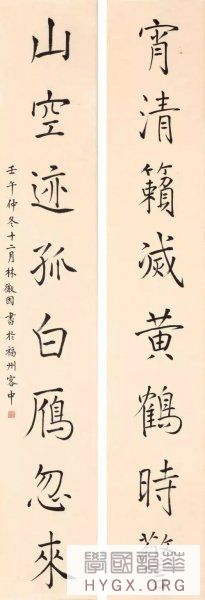 宵清籟滅黄鶴時
山空迹孤白鴈忽來
壬午仲冬十二月林徽因書於福州客中
華韻國學
HYGX.ORG